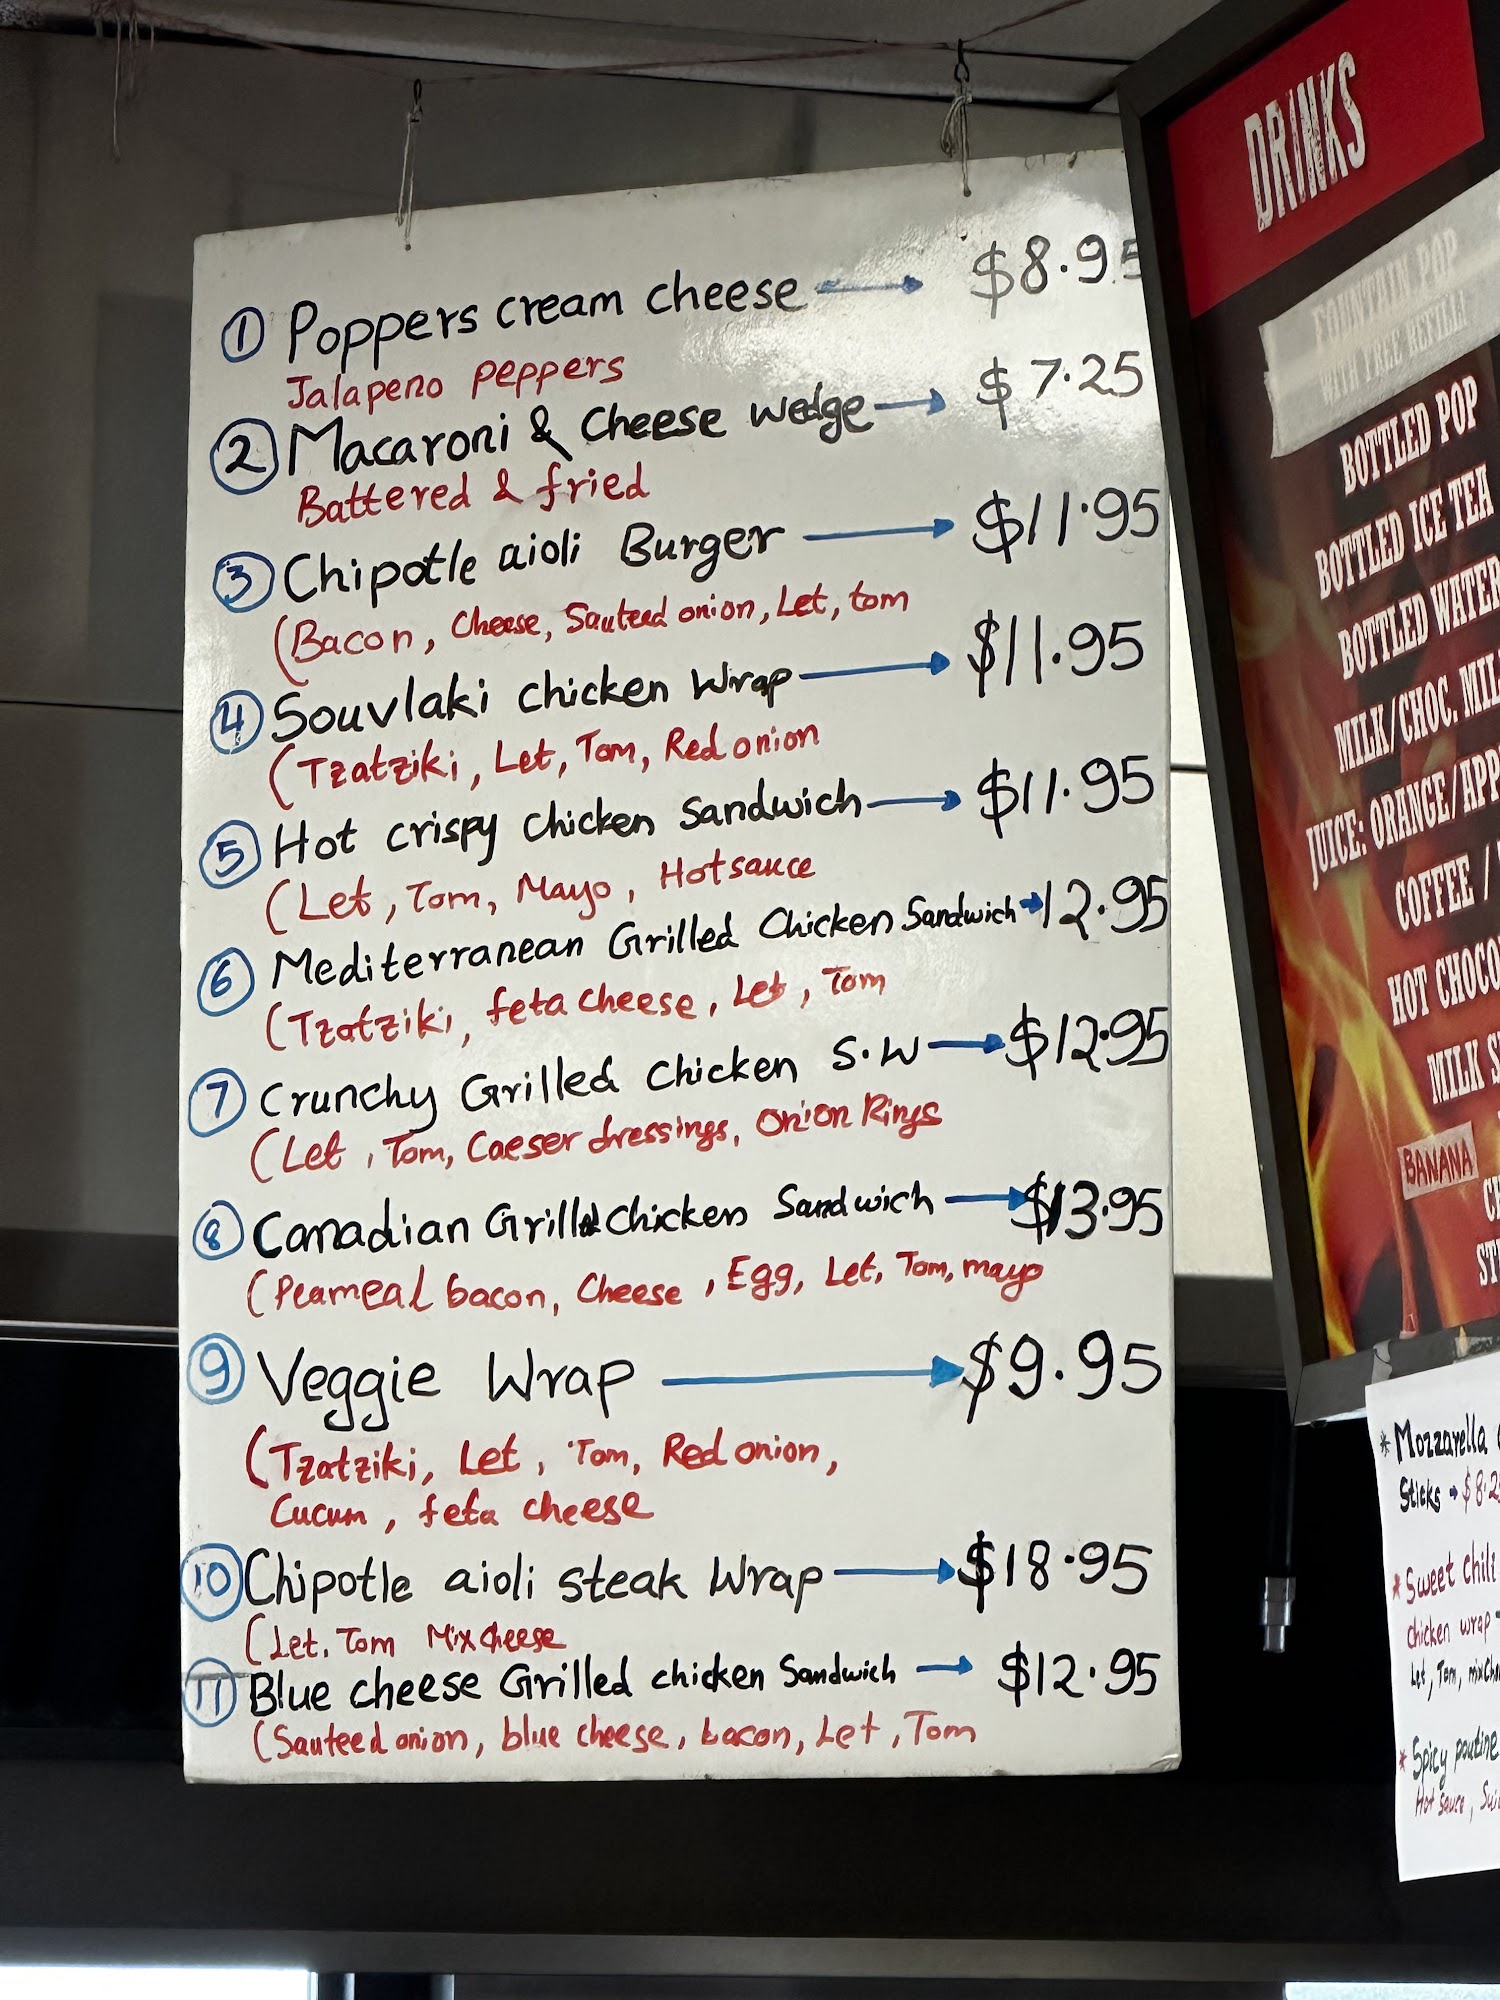 ① Poppers cream cheese → $8.95
Jalapeno peppers
② Macaroni & Cheese wedge → $7.25
Battered & fried
③ Chipotle aioli Burger → $11.95
(Bacon, Cheese, Sauteed onion, Let, tom
④ Souvlaki chicken Wrap → $11.95
(Tzatziki, Let, Tom, Red onion
⑤ Hot crispy chicken Sandwich → $11.95
(Let, Tom, Mayo, Hot sauce
⑥ Mediterranean Grilled Chicken Sandwich → 12.95
(Tzatziki, feta cheese, Let, Tom
⑦ Crunchy Grilled Chicken S.W → $12.95
(Let, Tom, Caeser dressings, Onion Rings
⑧ Canadian Grilled Chicken Sandwich → $13.95
(Peameal bacon, Cheese, Egg, Let, Tom, mayo
⑨ Veggie Wrap → $9.95
(Tzatziki, Let, Tom, Red onion,
Cucum, feta cheese
⑩ Chipotle aioli steak Wrap → $18.95
(Let, Tom Mix Cheese
⑪ Blue cheese Grilled chicken Sandwich → $12.95
(Sauteed onion, blue cheese, bacon, Let, Tom
DRINKS
FOUNTAIN POP
WITH FREE REFILL!
BOTTLED POP
BOTTLED ICE TEA
BOTTLED WATER
MILK/CHOC. MIL
JUICE: ORANGE/APP
COFFEE /
HOT CHOCO
MILK S
BANANA
C
ST
* Mozzarella
Sticks → $8.2
* Sweet chili
chicken wrap
Let, Tom, mix Che
* Spicy poutine
Hot sauce,